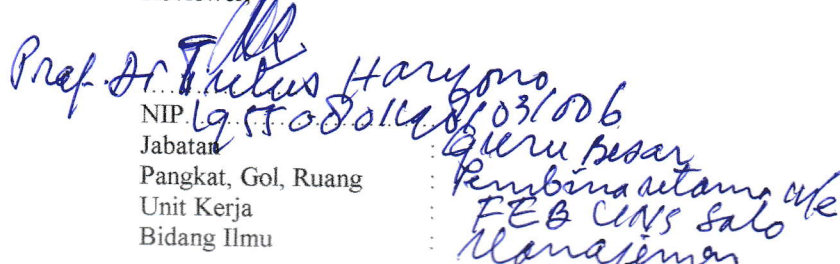 Reviewer,
Prof. Dr Tulus Haryono
NIP. 195508011981031006
Jabatan : Guru Besar
Pangkat, Gol, Ruang : Pembina utama IV/e
Unit Kerja : FEB UNS Solo
Bidang Ilmu : Manajemen